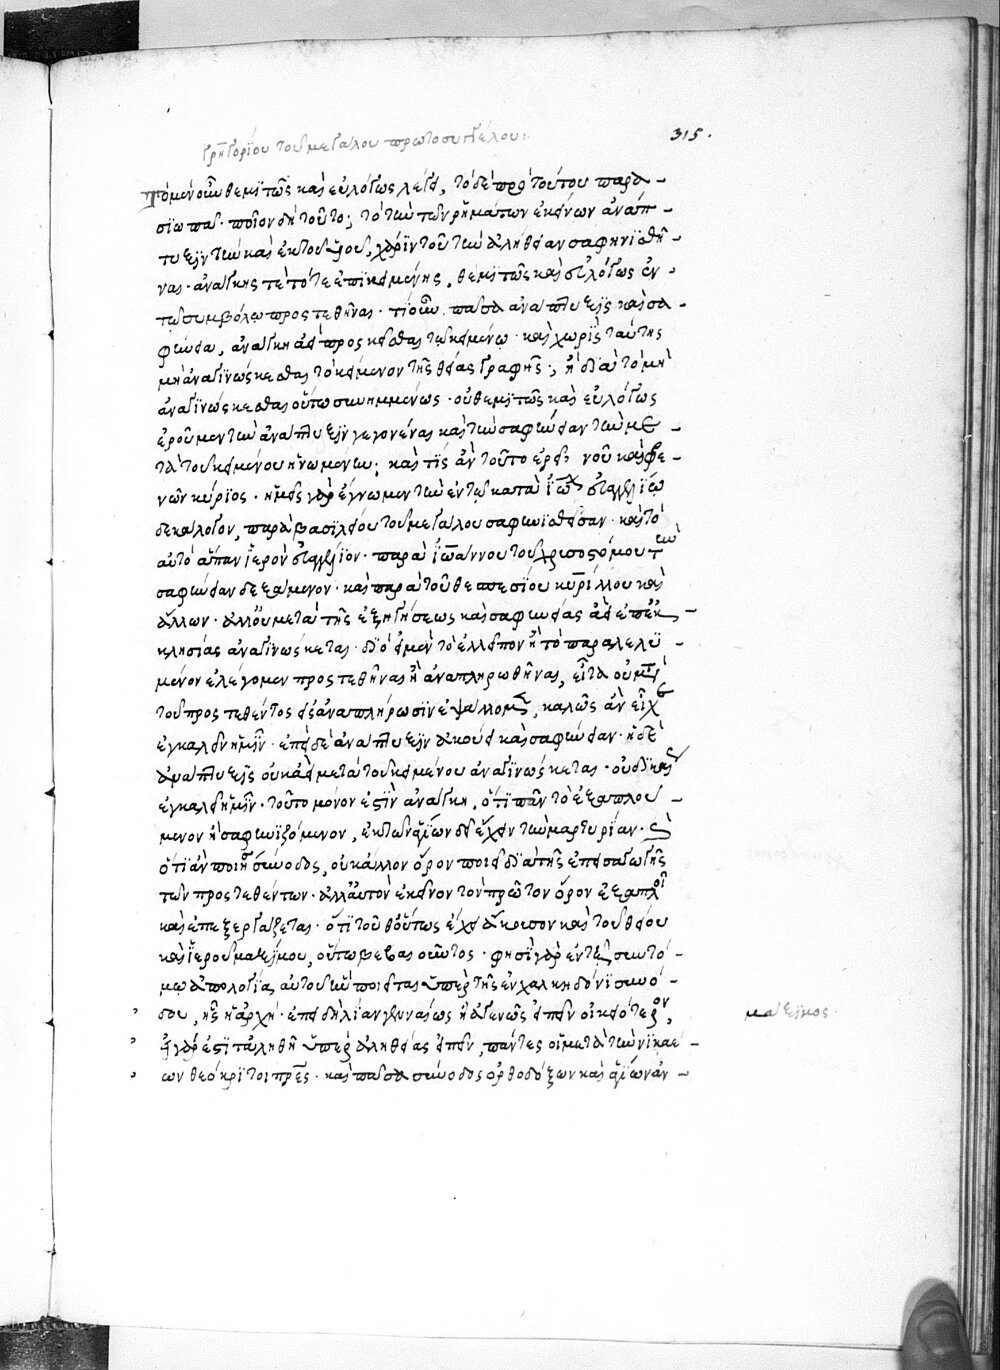 Γρηγορίου τοῦ μεγάλου πρωτοσυγγέλου:
315.
Τὸ μὲν οὖν θεμιτῶς καὶ εὐλόγως λέγει, τὸ δὲ πρὸ τούτου παρα-
σιωπᾷ· ποῖον δὴ τοῦτο; τὸ τὴν τῶν ῥημάτων ἐκείνων ἀνάπ-
τυξιν τὴν καὶ ἐκ τοῦ χάριν τοῦ τὴν ἀλήθειαν σαφηνισθῆ-
ναι· ἀνάγκης τε τότε ἐπικειμένης, θεμιτῶς καὶ εὐλόγως ἐν
τῷ συμβόλῳ προστεθῆναι· τί οὖν πᾶσα ἀνάπτυξις καὶ σα-
φήνεια, ἀνάγκη ἀεὶ προσκεῖσθαι τῷ κειμένῳ· καὶ χωρὶς ταύτης
μὴ ἀναγινώσκεσθαι τὸ κείμενον τῆς θείας γραφῆς; ἢ διὰ τὸ μὴ
ἀναγινώσκεσθαι οὕτω συνημμένως· οὐ θεμιτῶς καὶ εὐλόγως
ἐροῦμεν τὴν ἀνάπτυξιν γεγονέναι καὶ τὴν σαφήνειαν τὴν με-
τὰ τοῦ κειμένου ἡνωμένην; καὶ τίς ἂν τοῦτο ἐρεῖ νοῦ καὶ φρε-
νῶν κύριος· ἡμεῖς γὰρ ἔγνωμεν τὴν ἐν τῷ κατὰ Ἰω εὐαγγελίῳ
δεκάλογον, παρὰ βασιλείου τοῦ μεγάλου σαφηνισθεῖσαν· καὶ τὸ
αὐτὸ ἅπαν ἱερὸν εὐαγγέλιον· παρὰ Ἰωάννου τοῦ χρυσοστόμου τὴν
σαφήνειαν δεξάμενον· καὶ παρὰ τοῦ θεσπεσίου κυρίλλου καὶ
ἄλλων· ἀλλ' οὐ μετὰ τῆς ἐξηγήσεως καὶ σαφηνείας ἀεὶ ἐπ' ἐκ-
κλησίας ἀναγινώσκεται· διὸ εἰ μὲν τὸ ἐλλεῖπον ἢ τὸ παραλελει-
μένον ἐλέγομεν προστεθῆναι ἢ ἀναπληρωθῆναι, εἶτα οὐ μετὰ
τοῦ προστεθέντος εἰς ἀναπλήρωσιν ἐψάλλομεν, καλῶς ἂν εἶχε
ἐγκαλεῖν ἡμῖν· ἐπεὶ δὲ ἀνάπτυξιν ἀκούει καὶ σαφήνειαν· ἡ δὲ
ἀνάπτυξις οὐκ ἀεὶ μετὰ τοῦ κειμένου ἀναγινώσκεται· οὐ δικαίως
ἐγκαλεῖ ἡμῖν· τοῦτο μόνον ἐστὶν ἀνάγκη, ὅτι πᾶν τὸ ἐξαπλού-
μενον ἢ σαφηνιζόμενον, ἐκ τῶν ἁγίων δεῖ ἔχειν τὴν μαρτυρίαν· καὶ
ὅτι ἂν ποιῇ σύνοδος, οὐκ ἄλλον ὅρον ποιεῖ διὰ τῆς ἐπεισαγωγῆς
τῶν προστεθέντων· ἀλλ' αὐτὸν ἐκεῖνον τὸν πρῶτον ὅρον ἐξαπλοῖ
καὶ ἐπεξεργάζεται· ὅτι τοῦθ' οὕτως ἔχει ἄκουσον καὶ τοῦ θείου
καὶ ἱεροῦ μαξίμου, οὕτω βεβαιοῦντος· φησὶ γὰρ ἐν τῇ συντό-
μῳ ἀπολογίᾳ αὐτοῦ ἣν ποιεῖται ὑπὲρ τῆς ἐν χαλκηδόνι συνό-
δου, ἧς ἡ ἀρχή· ἐπειδὴ λίαν γενναίως ἢ ἀγενῶς εἰπεῖν οἰκειότερον,
εἰ γάρ ἐστι τἀληθῆ ὑπὲρ ἀληθείας εἰπεῖν, πάντες οἱ μετὰ τὴν νικαέ-
ων θεόκριτοι πρες· καὶ πᾶσα σύνοδος ὀρθοδόξων καὶ ἁγίων ἀν-
μάξιμος